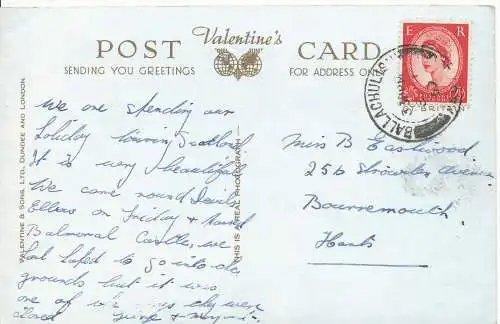 POST Valentine's CARD
SENDING YOU GREETINGS
FOR ADDRESS ONLY
VALENTINE & SONS, LTD., DUNDEE AND LONDON.
THIS IS A REAL PHOTOGRAPH
E R
BALLACHULISH
We are spending our
holiday touring Scotland
It is very beautiful
We came round
on Friday &
Balmoral Castle, we
had hoped to go into the
grounds but it was
one of days they were
closed
Miss B Eastwood
25b Avenue
Bournemouth
Hants